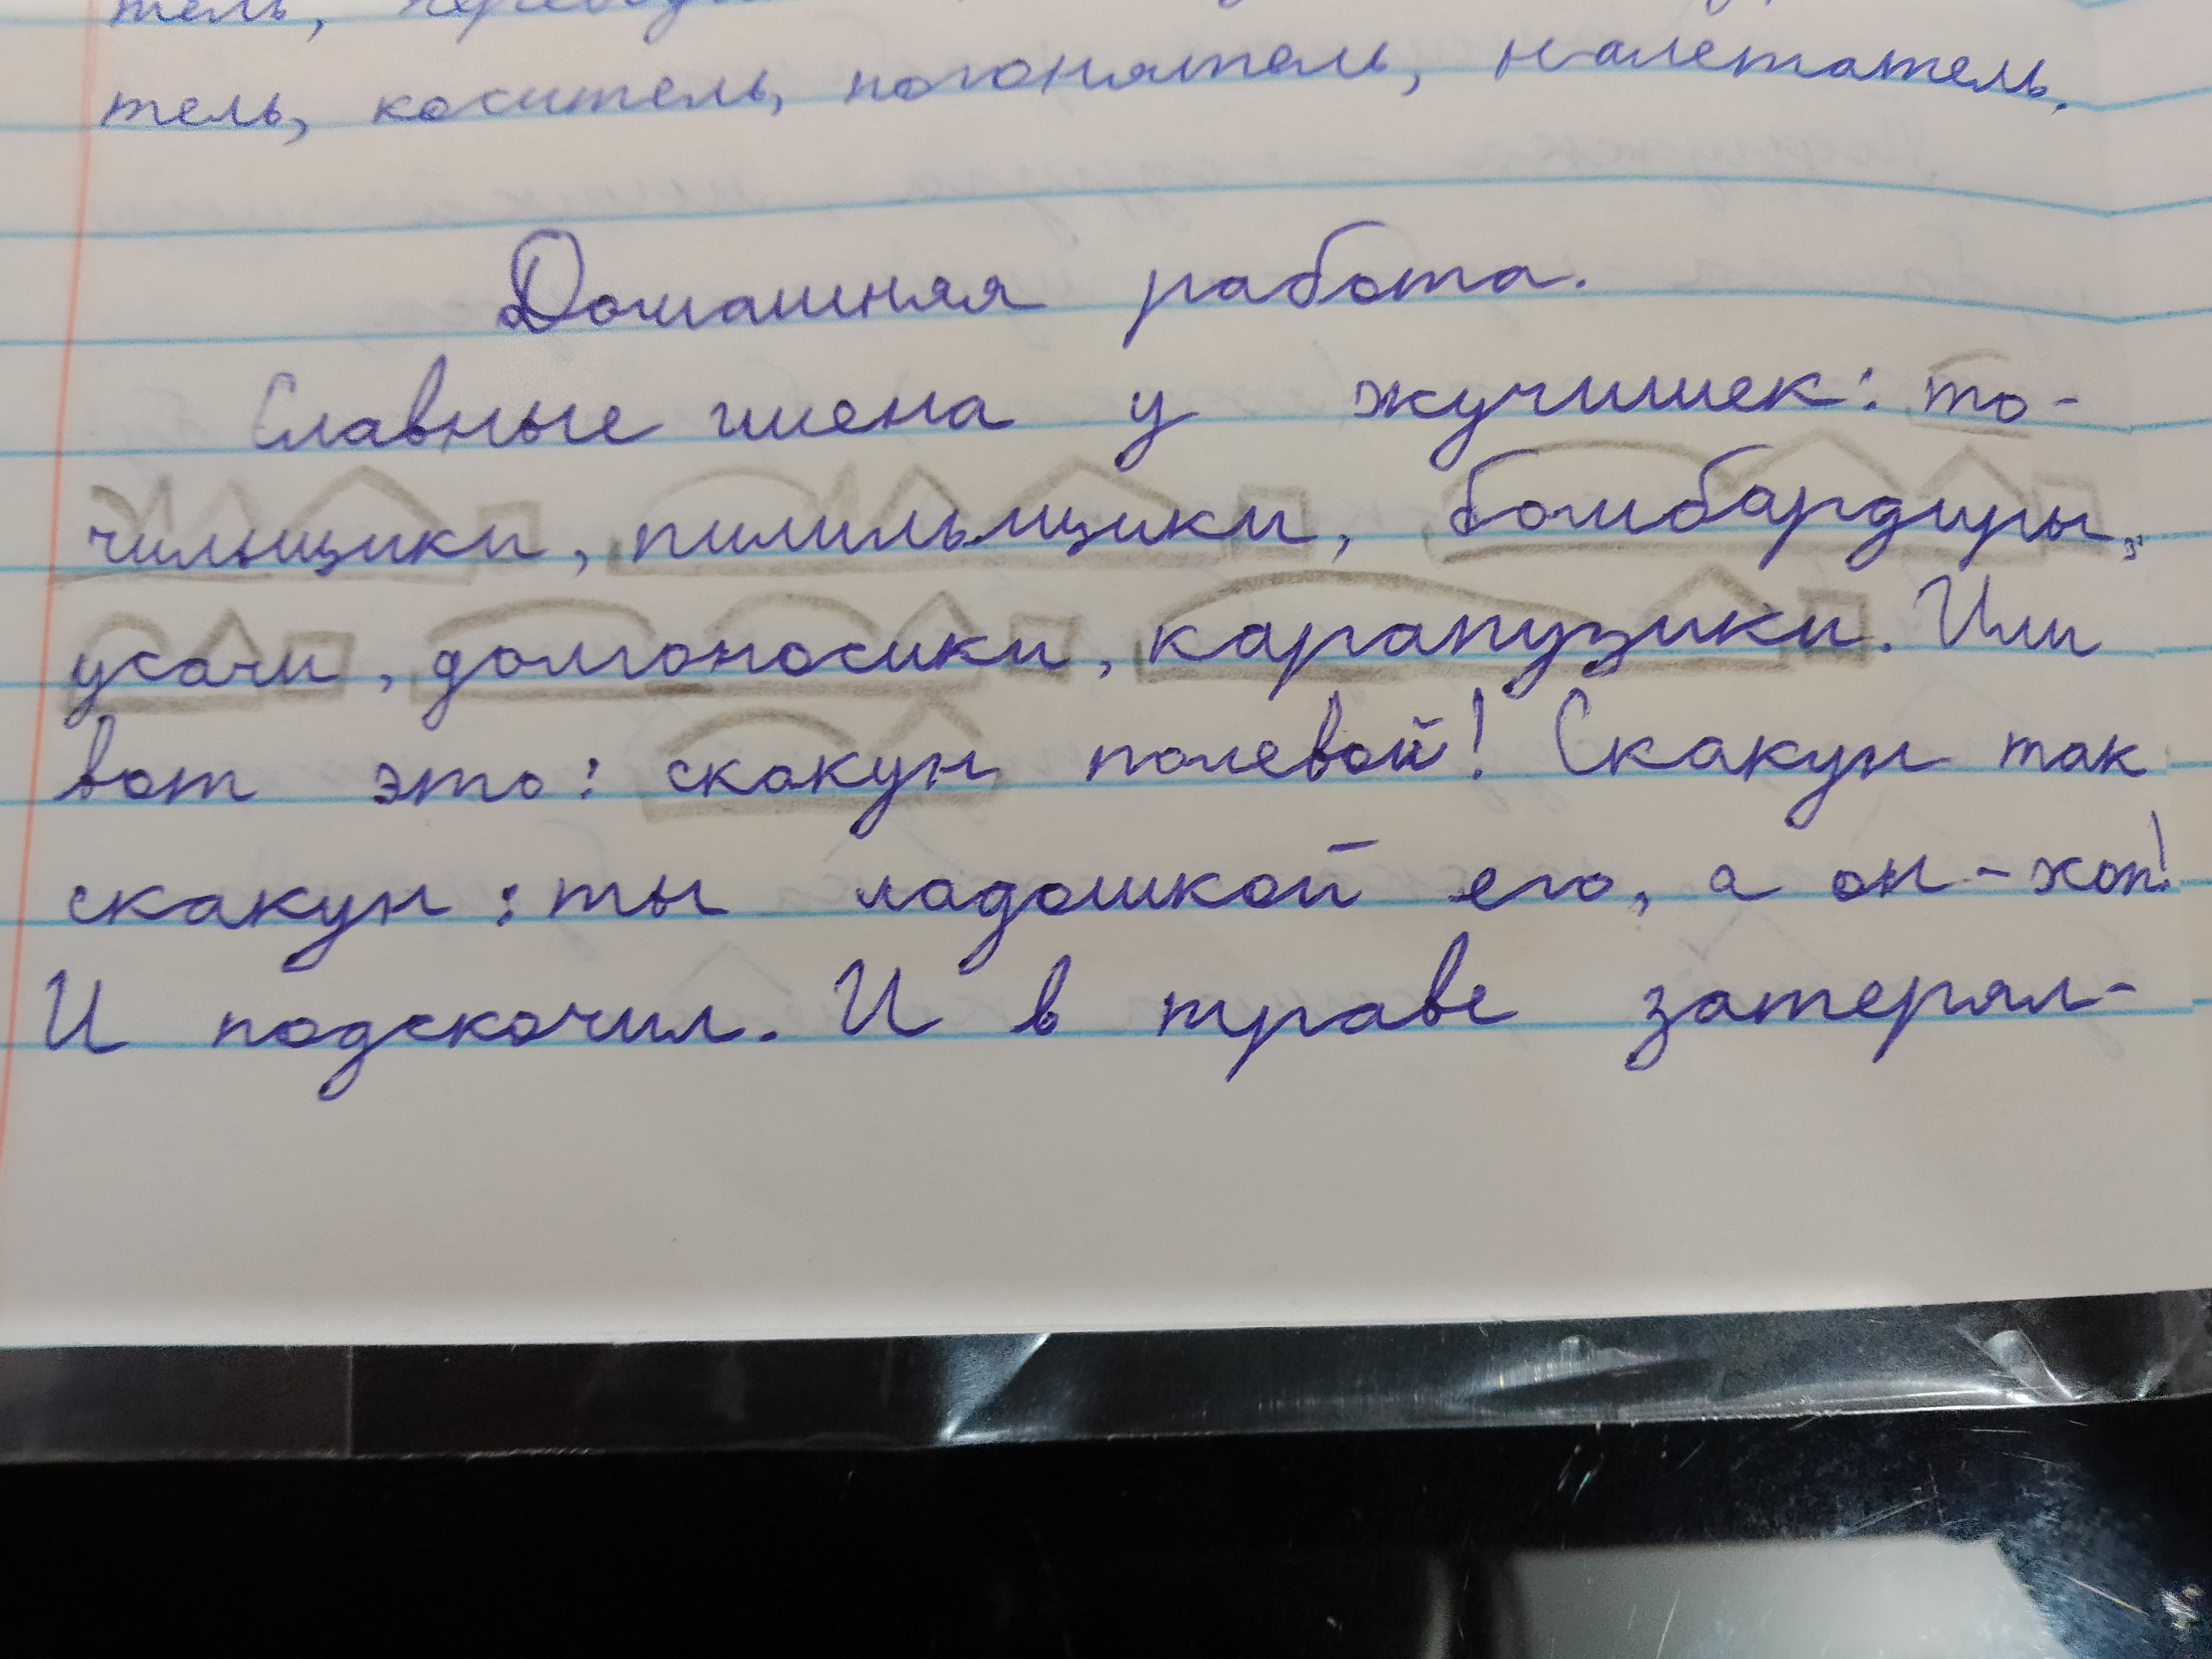 тель,
тель, коситель, погонятель, налетатель.
Домашняя работа.
Славные имена у жучишек: то-
чильщики, пилильщики, бомбардиры,
усачи, долгоносики, карапузики. Или
вот это: скакун полевой! Скакун так
скакун: ты ладошкой его, а он - хоп!
И подскочил. И в траве затерял-